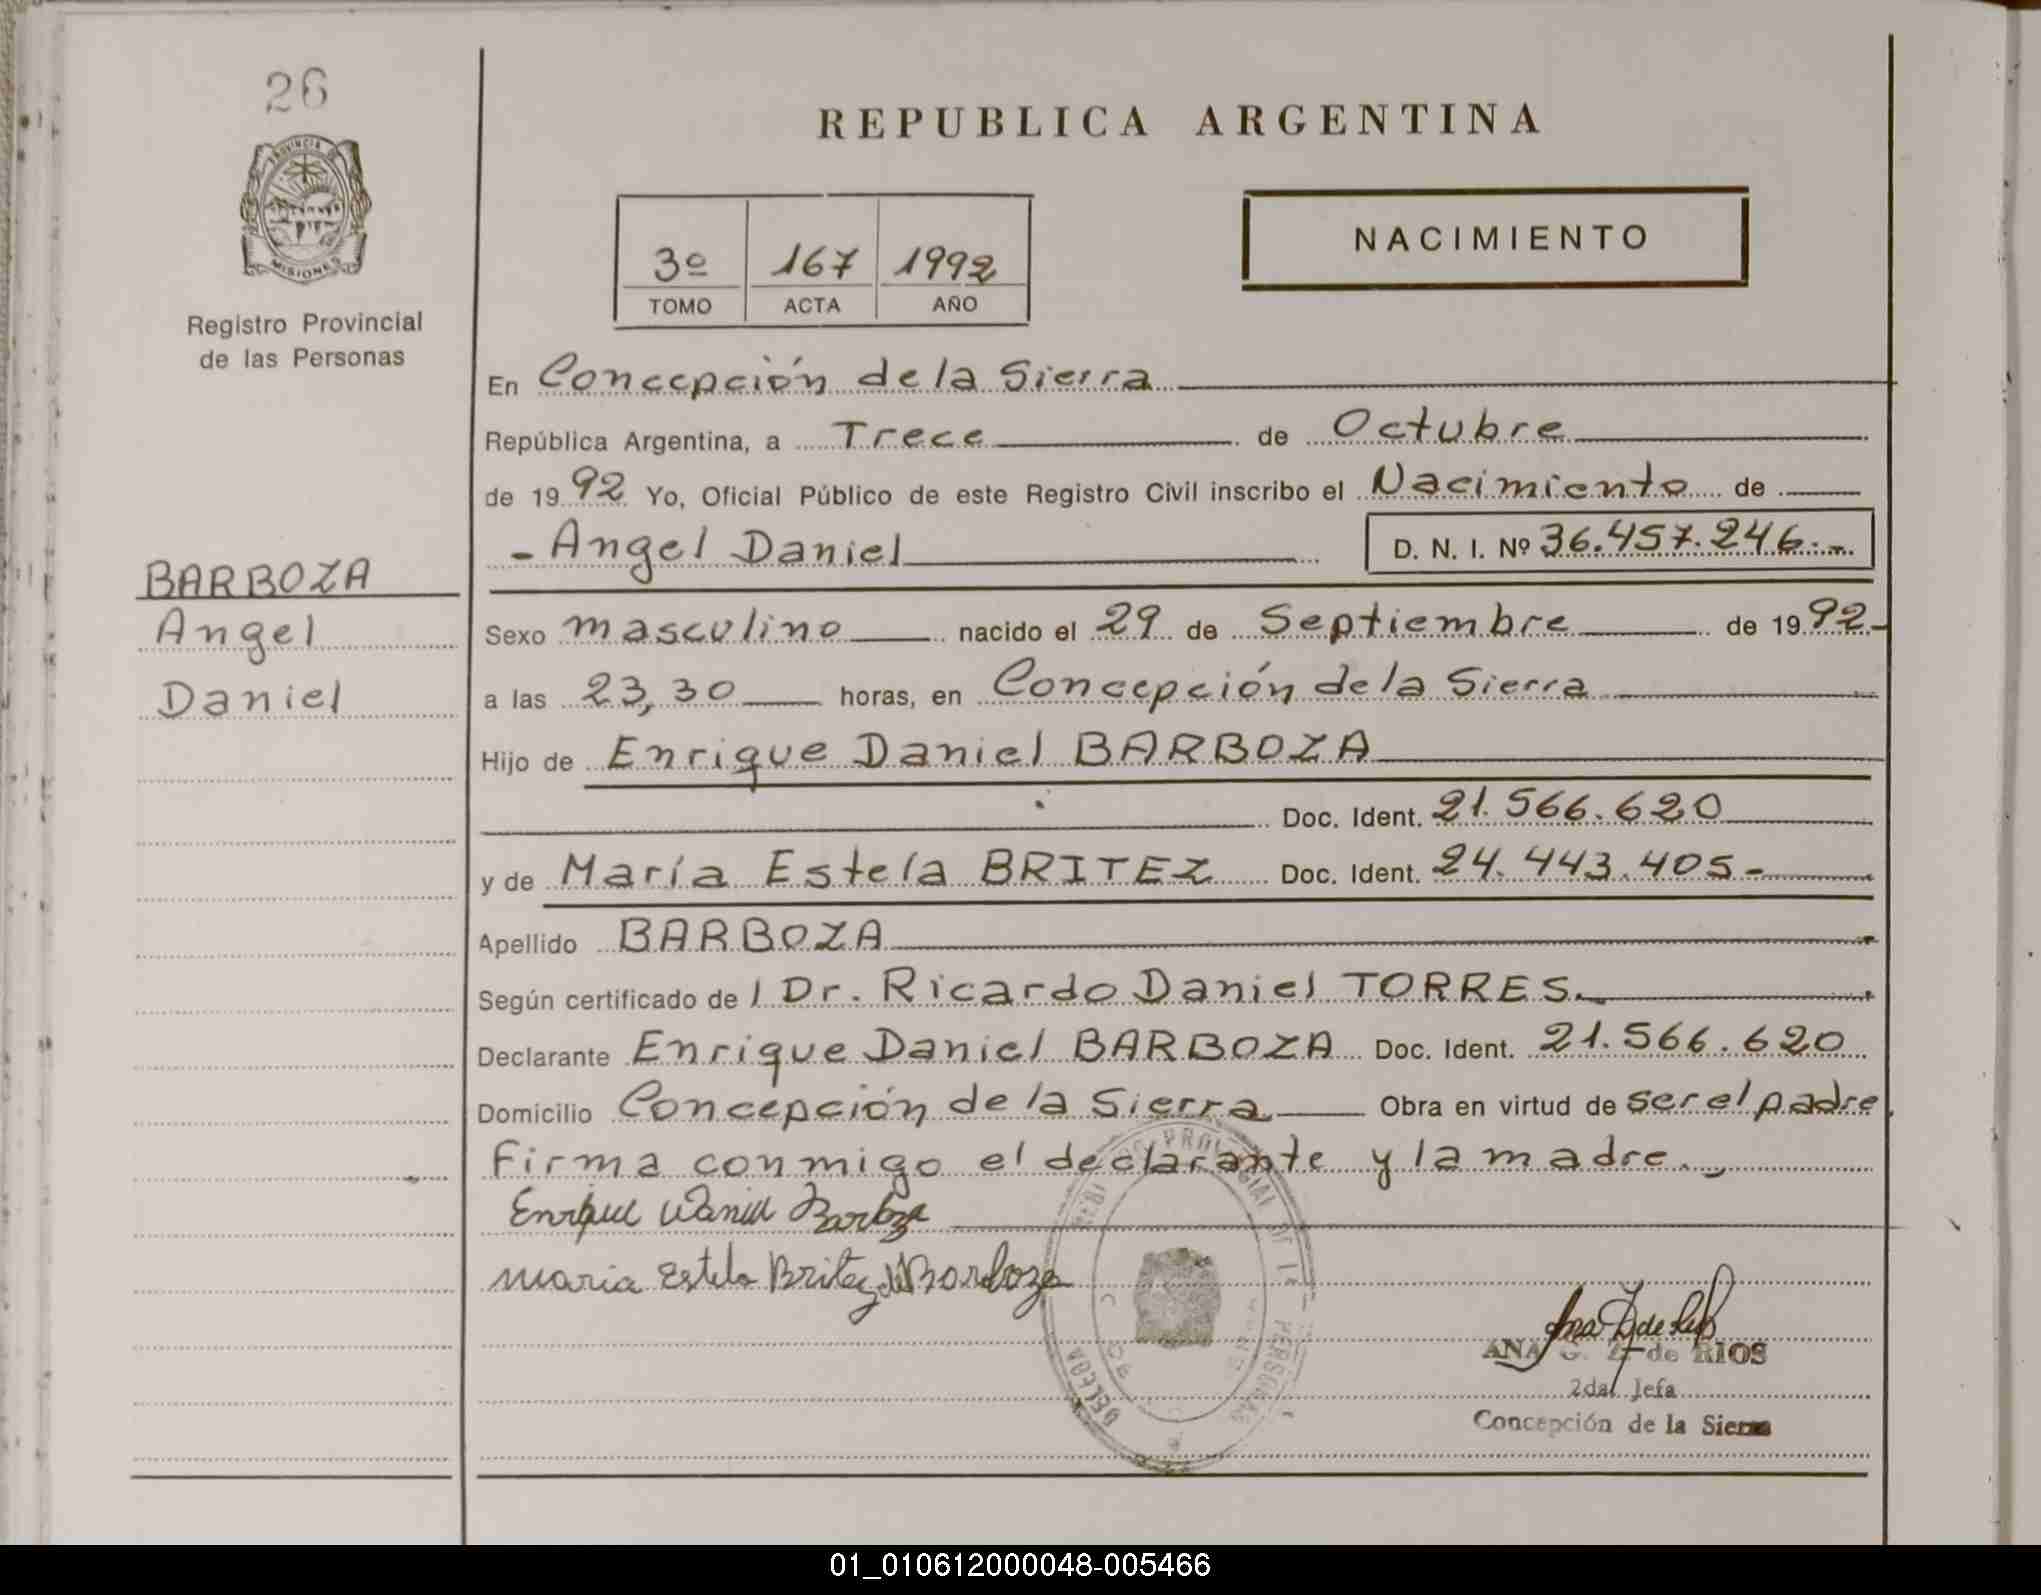 26
PROVINCIA DE
MISIONES
Registro Provincial
de las Personas
BARBOZA
Angel
Daniel
REPUBLICA ARGENTINA
NACIMIENTO
3º 167 1992
TOMO ACTA AÑO
En Concepción de la Sierra
República Argentina, a Trece de Octubre
de 1992 Yo, Oficial Público de este Registro Civil inscribo el Nacimiento de
- Angel Daniel D. N. I. Nº 36.457.246.-
Sexo masculino nacido el 29 de Septiembre de 1992-
a las 23,30 horas, en Concepción de la Sierra
Hijo de Enrique Daniel BARBOZA
Doc. Ident. 21.566.620
y de María Estela BRITEZ Doc. Ident. 24.443.405-
Apellido BARBOZA
Según certificado del Dr. Ricardo Daniel TORRES.
Declarante Enrique Daniel BARBOZA Doc. Ident. 21.566.620
Domicilio Concepción de la Sierra Obra en virtud de ser el padre.
Firma conmigo el declarante y la madre.
Enrique Daniel Barboza
Maria Estela Britez de Barboza
ANA de RIOS
2da. Jefa
Concepción de la Sierra
01_010612000048-005466